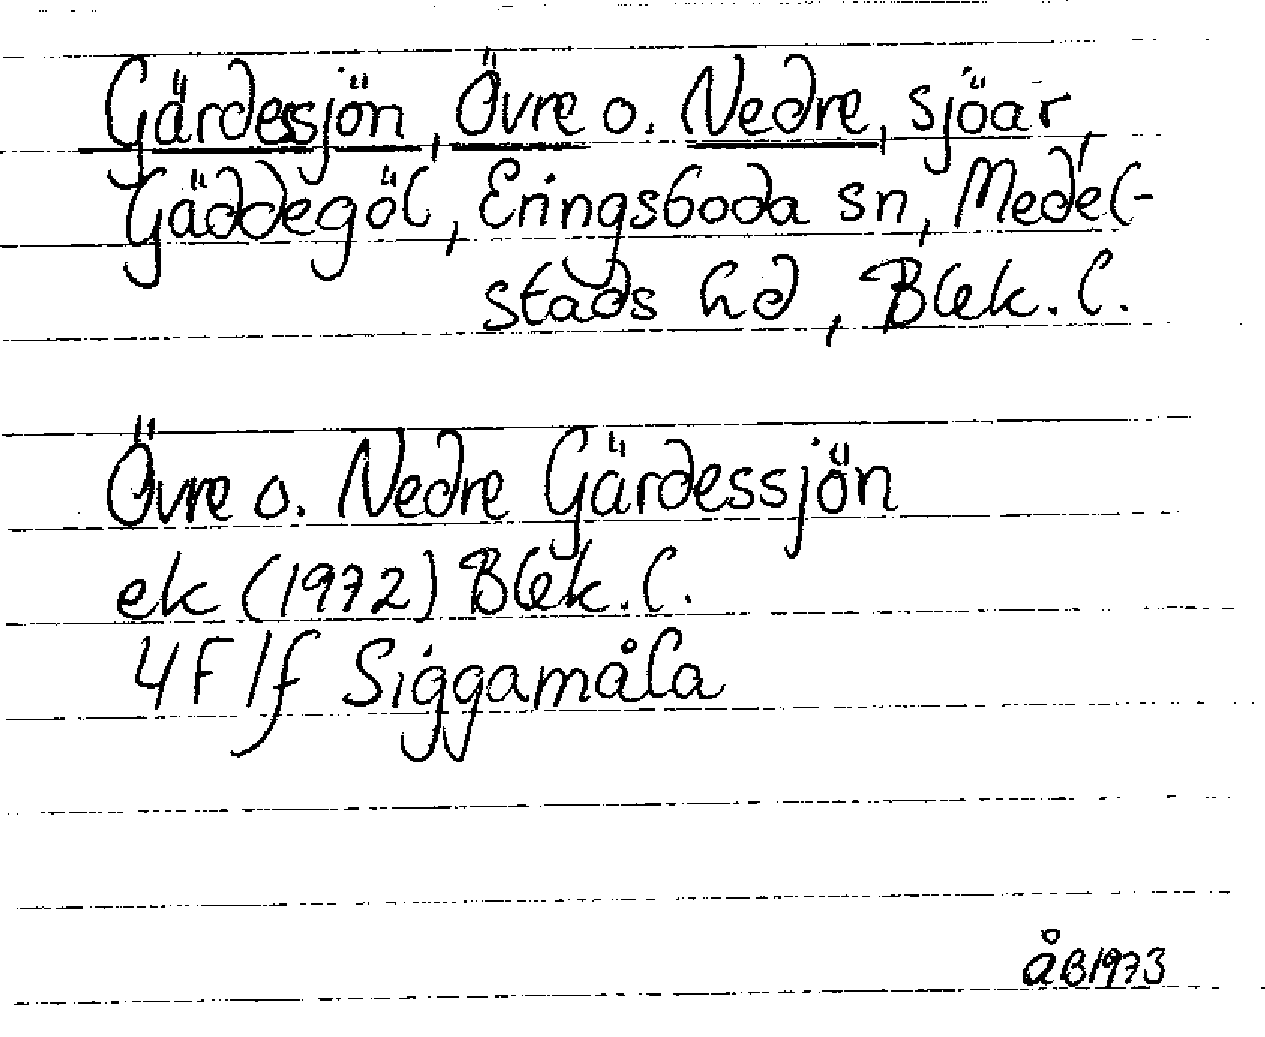 Gärdessjön, Övre o. Nedre, sjöar,
Gäddegöl, Eringsboda sn, Medel-
stads hd, Blek. l.
Övre o. Nedre Gärdessjön
ek (1972) Blek. l.
4F 1f Siggamåla
åB1973